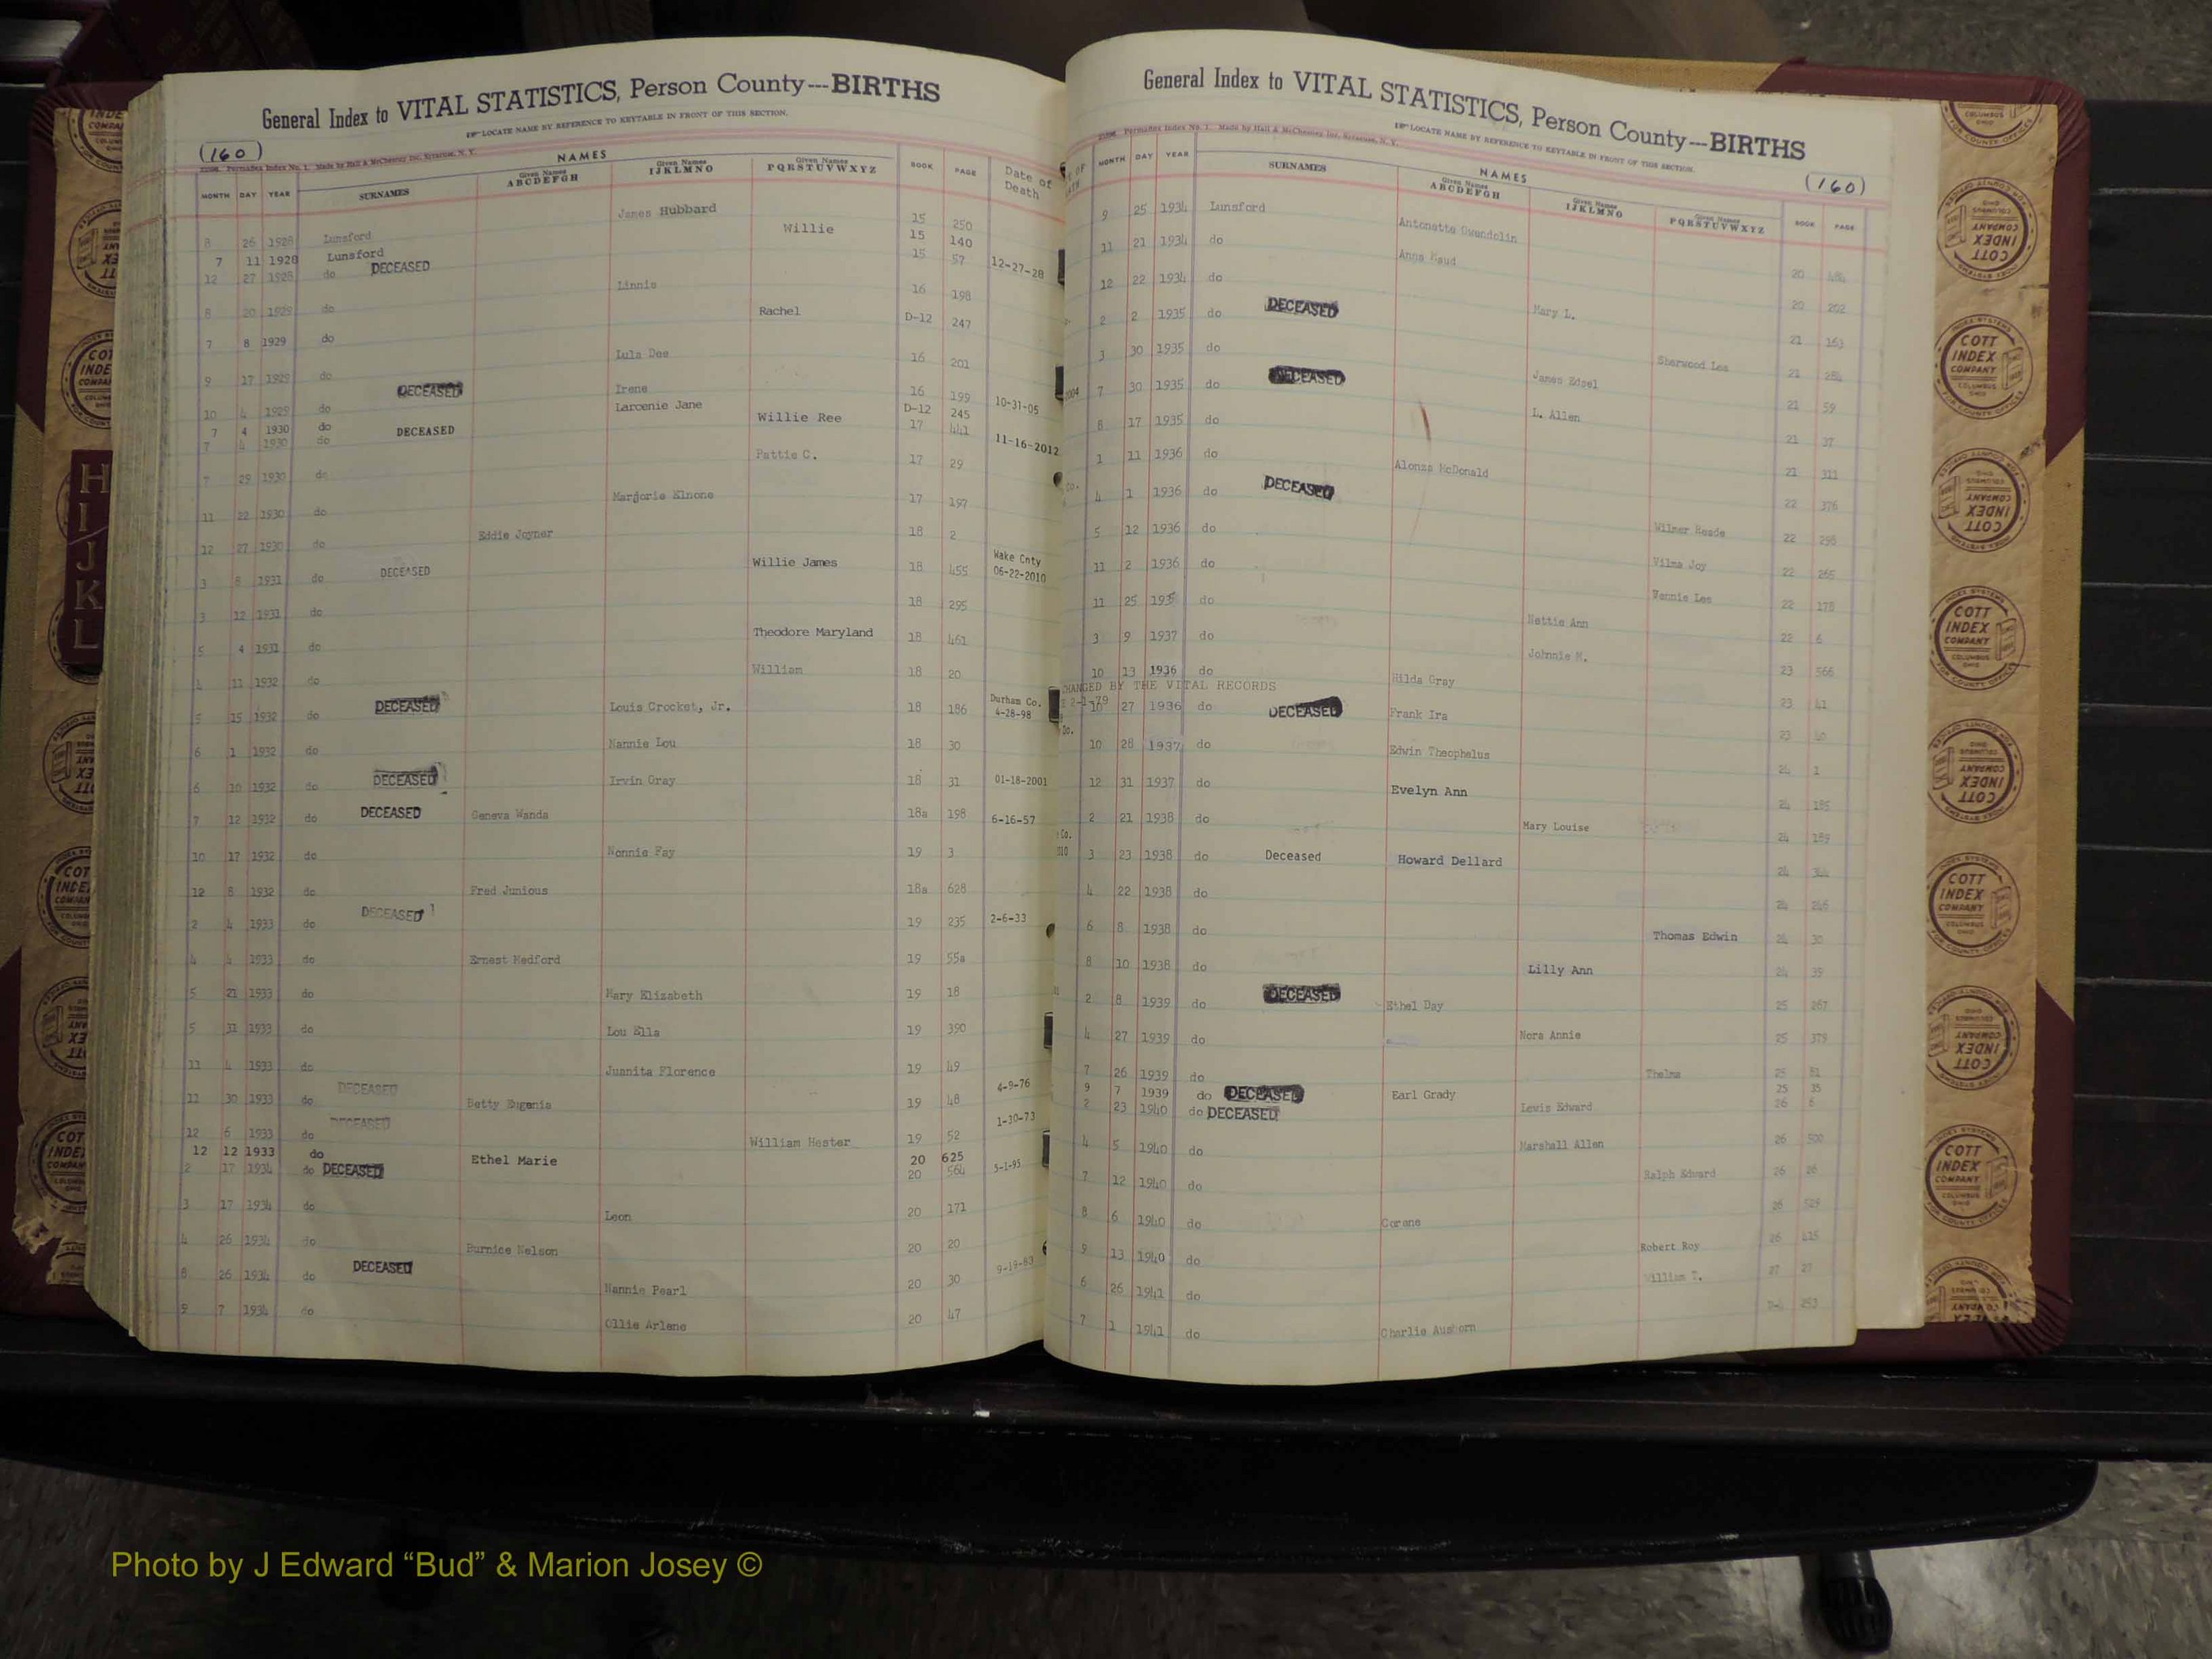 General Index to VITAL STATISTICS, Person County---BIRTHS
LOCATE NAME BY REFERENCE TO KEYTABLE IN FRONT OF THIS SECTION.
(160)
Made by Hall & McChesney Inc. Syracuse, N. Y.
NAMES
MONTH DAY YEAR SURNAMES Given Names ABCDEFGH Given Names IJKLMNO Given Names PQRSTUVWXYZ BOOK PAGE Date of Death
8 26 1928 Lunsford James Hubbard 15 250
7 11 1928 Lunsford Willie 15 140
12 27 1928 do DECEASED 15 57 12-27-28
8 20 1929 do Linnie 16 198
7 8 1929 do Rachel D-12 247
9 17 1929 do Lula Dee 16 201
10 4 1929 do DECEASED Irene 16 199 10-31-05
7 4 1930 do Larcenie Jane D-12 245
7 4 1930 do DECEASED Willie Ree 17 441 11-16-2012
7 29 1930 do Pattie C. 17 29
11 22 1930 do Marjorie Elnone 17 197
12 27 1930 do Eddie Joyner 18 2
3 8 1931 do DECEASED Willie James 18 455 Wake Cnty 06-22-2010
3 12 1931 do 18 295
5 4 1931 do Theodore Maryland 18 461
1 11 1932 do William 18 20
5 15 1932 do DECEASED Louis Crocket, Jr. 18 186 Durham Co. 4-28-98
6 1 1932 do Nannie Lou 18 30
6 10 1932 do DECEASED Irvin Gray 18 31 01-18-2001
7 12 1932 do DECEASED Geneva Wanda 18a 198 6-16-57
10 17 1932 do Nonnie Fay 19 3
12 8 1932 do Fred Junious 18a 628
2 4 1933 do DECEASED 19 235 2-6-33
4 4 1933 do Ernest Hedford 19 55a
5 21 1933 do Mary Elizabeth 19 18
5 31 1933 do Lou Ella 19 390
11 4 1933 do Juanita Florence 19 49
11 30 1933 do DECEASED Betty Eugenia 19 48 4-9-76
12 6 1933 do DECEASED William Hester 19 52 1-30-73
12 12 1933 do Ethel Marie 20 625
2 17 1934 do DECEASED 20 564 3-1-95
3 17 1934 do Leon 20 171
4 26 1934 do Burnice Nelson 20 20
8 26 1934 do DECEASED Nannie Pearl 20 30 9-19-83
9 7 1934 do Ollie Arlene 20 47
General Index to VITAL STATISTICS, Person County---BIRTHS
LOCATE NAME BY REFERENCE TO KEYTABLE IN FRONT OF THIS SECTION.
Made by Hall & McChesney Inc. Syracuse, N. Y.
(160)
NAMES
MONTH DAY YEAR SURNAMES Given Names ABCDEFGH Given Names IJKLMNO Given Names PQRSTUVWXYZ BOOK PAGE
9 25 1934 Lunsford Antonette Gwendolin 20 484
11 21 1934 do Anna Maud 20 202
12 22 1934 do 21 163
2 2 1935 do DECEASED Mary L. 21
3 30 1935 do Sherwood Lee 21 59
7 30 1935 do DECEASED James Edsel 21 37
8 17 1935 do L. Allen 21 311
1 11 1936 do Alonza McDonald 22 376
4 1 1936 do DECEASED 22 298
5 12 1936 do Wilmer Reade 22 265
11 2 1936 do Vilma Joy 22 178
11 25 193 do Wennie Lee 22 6
3 9 1937 do Nettie Ann 23 566
10 13 1936 do Johnnie M. 23 41
CHANGED BY THE VITAL RECORDS
2-1-79
Hilda Gray
10 27 1936 do DECEASED Frank Ira 23 40
10 28 1937 do Edwin Theophelus 24 1
12 31 1937 do Evelyn Ann 24 185
2 21 1938 do Mary Louise 24 189
3 23 1938 do Deceased Howard Dellard 24
4 22 1938 do 24 246
6 8 1938 do Thomas Edwin 24 30
8 10 1938 do Lilly Ann 24 39
2 8 1939 do DECEASED Ethel Day 25 267
4 27 1939 do Nora Annie 25 379
7 26 1939 do Thelma 25 81
9 7 1939 do DECEASED Earl Grady 25 35
2 23 1940 do DECEASED Lewis Edward 26 6
4 5 1940 do Marshall Allen 26 500
7 12 1940 do Ralph Edward 26 26
8 6 1940 do Corene 26 529
9 13 1940 do Robert Roy 26 415
6 26 1941 do William T. 27 27
7 1 1941 do Charlie Ausborn 253
H
I/J
K
L
COTT INDEX COMPANY
COLUMBUS OHIO
INDEX SYSTEMS
FOR COUNTY OFFICES
Photo by J Edward “Bud” & Marion Josey ©